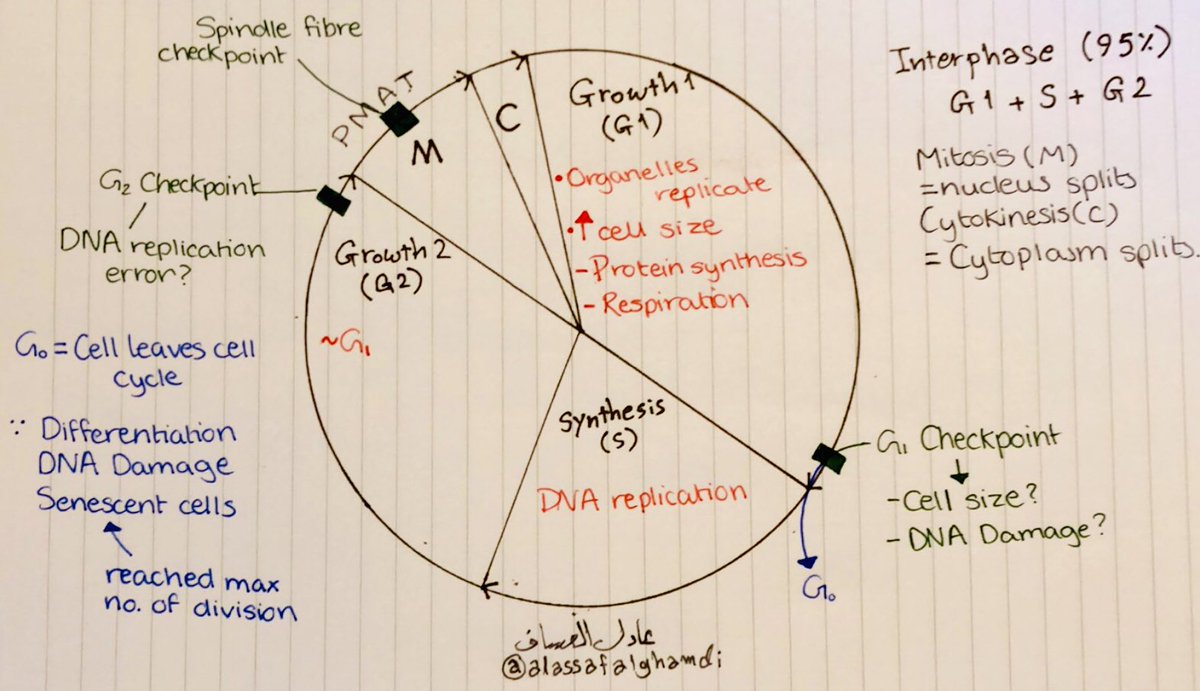 Spindle fibre
checkpoint
PMAT
M
C
Growth 1
(G1)
• Organelles
replicate
• ↑ cell size
- Protein synthesis
- Respiration
Interphase (95%)
G1 + S + G2
Mitosis (M)
= nucleus splits
Cytokinesis (C)
= Cytoplasm splits.
G₂ Checkpoint
DNA replication
error?
Growth 2
(G2)
~G₁
G₀ = Cell leaves cell
cycle
∵ Differentiation
DNA Damage
Senescent cells
reached max
no. of division
Synthesis
(S)
DNA replication
G₁ Checkpoint
- Cell size?
- DNA Damage?
G₀
عادل العساف
@alassafalghamdi